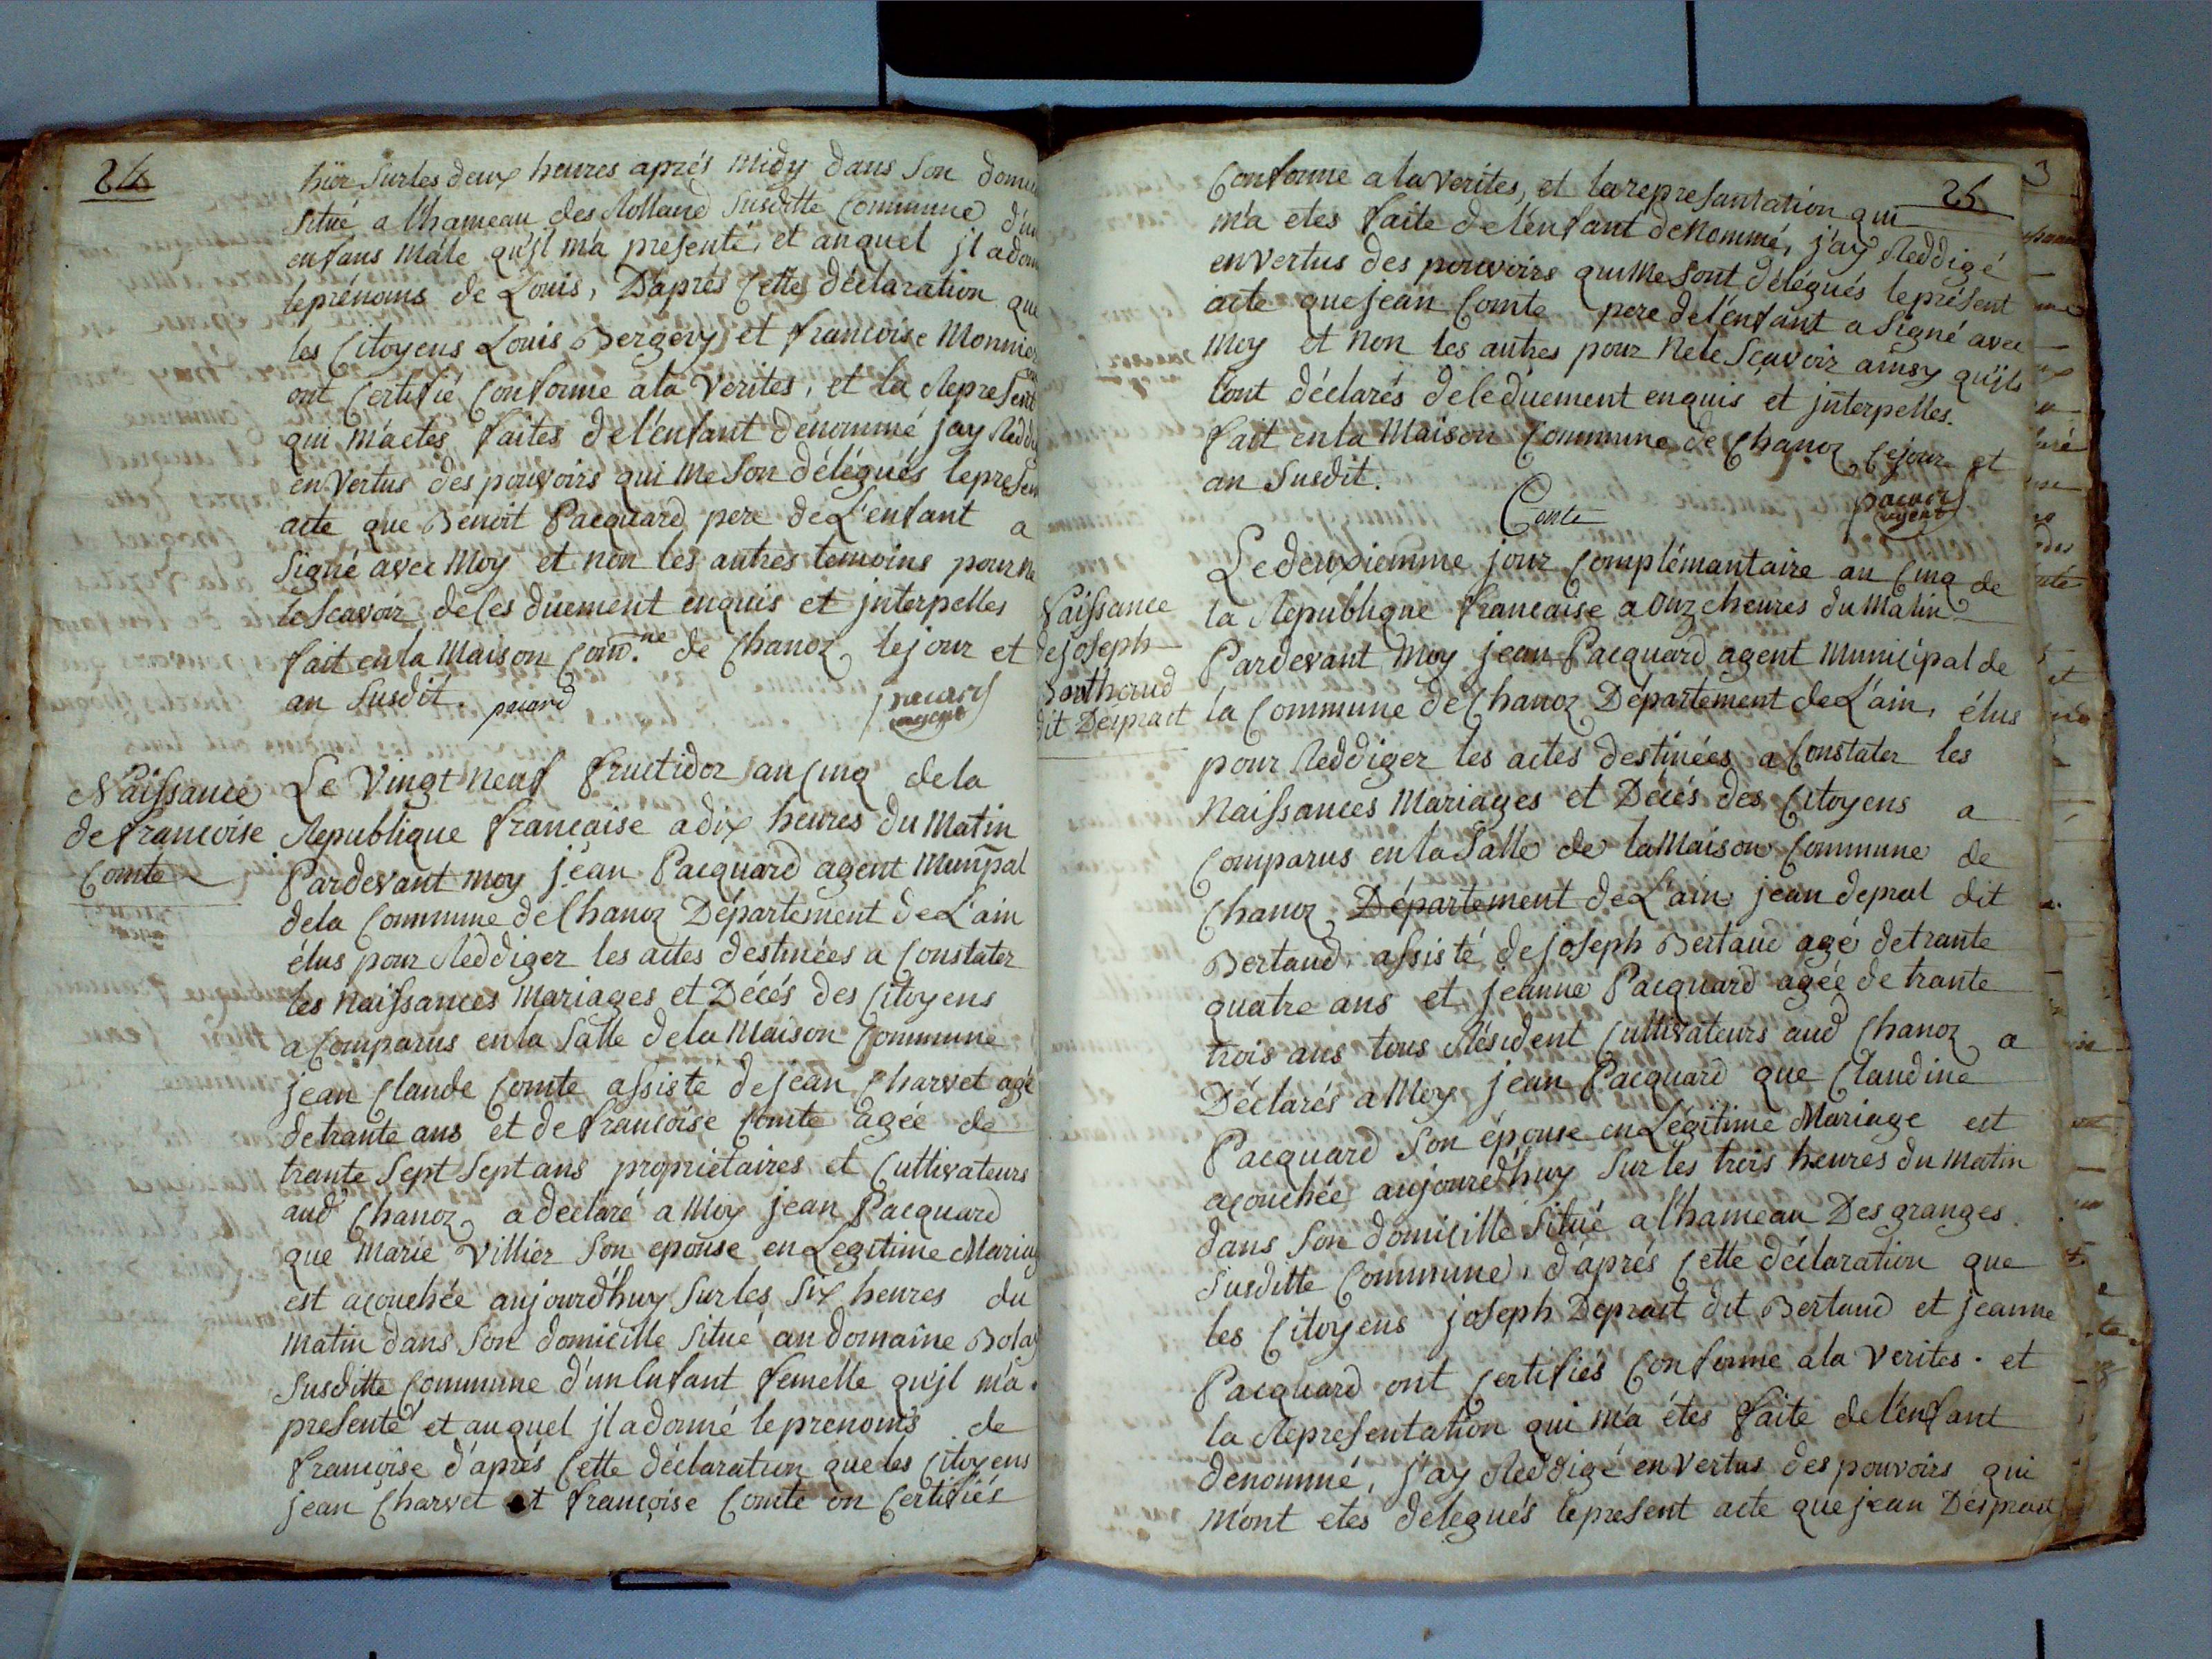 24
hier sur les deux heures aprés midy dans son
situé a l'hameau des Rolland susditte commune d'un
enfans mâle qu'jl m'a presenté, et auquel jl a
le prénoms de Louis, D'aprés cette déclaration que
les Citoyens Louis Bergery et francoise Monnier
ont certifié conforme a la verites, et la
qui m'a etes faites de l'enfant denommé j'ay
en vertus des pouvoirs qui me son délégués le
acte que Benoit Pacquard pere de L'enfant a
signé avec moy et non les autres temoins pour ne
le scavoir de les duement enquis et jnterpelles
fait en la maison com.ne de Chanoz le jour et
an susdit.
agent
Naissance
de francoise
Comte
Le vingt neuf fructidor an cinq de la
Republique francaise a dix heures du matin
Pardevant moy jean Pacquard agent munipal
de la commune de Chanoz Département de L'ain
élus pour Reddiger les actes destinées a constater
les naissances mariages et Décés des citoyens
a comparus en la salle de la maison commune
jean claude comte assisté de jean charvet agé
de trante ans et de francoise comte agée de
trante sept sept ans proprietaires et cultivateurs
aud chanoz a déclaré a moy jean Pacquard
que marie villier son epouse en Legitime
est acouchée aujourd'huy sur les six heures du
matin dans son domicille situé au domaine
susditte commune d'un enfant femelle qu'jl m'a
presenté et auquel jl a donné le prenoms de
francoise d'aprés cette déclaration que les citoyens
jean charvet et françoise comte on certifiés
25
Conforme a la verites, et la represantation qui
m'a etes faite de l'enfant denommé, j'ay Reddigé
en vertus des pouvoirs qui me sont délégués le présent
acte que jean Comte pere de l'enfant a signé avec
moy et non les autres pour ne le scavoir ainsy qu'jls
l'ont déclarés de le duement enquis et jnterpelles.
fait en la maison commune de chanoz ce jour et
an susdit.
Conte
agent
Naissance
de joseph
dit Després
Le deuxiemme jour complémantaire an cinq de
la Republique francaise a onze heures du matin
Pardevant moy jean Pacquard agent municipal de
la commune de Chanoz Département de L'ain, élus
pour Reddiger les actes destinées a constater les
naissances mariages et Décés des citoyens a
comparus en la salle de la maison commune de
chanoz Département de L'ain jean dit
Bertaud, assisté de joseph Bertaud agé de trante
quatre ans et jeanne Pacquard agée de trante
trois ans tous Résident cultivateurs aud chanoz a
Déclarés a moy jean Pacquard que claudine
Pacquard son épouse en Légitime mariage est
acouchée aujourd'huy sur les trois heures du matin
dans son domicille situé a l'hameau Des granges
susditte commune, d'aprés cette déclaration que
les citoyens joseph dit Bertaud et jeanne
Pacquard ont certifiés conforme a la verites. et
la Representation qui m'a étes faite de l'enfant
denommé, j'ay Reddigé en vertus des pouvoirs qui
m'ont etes delegués le present acte que jean